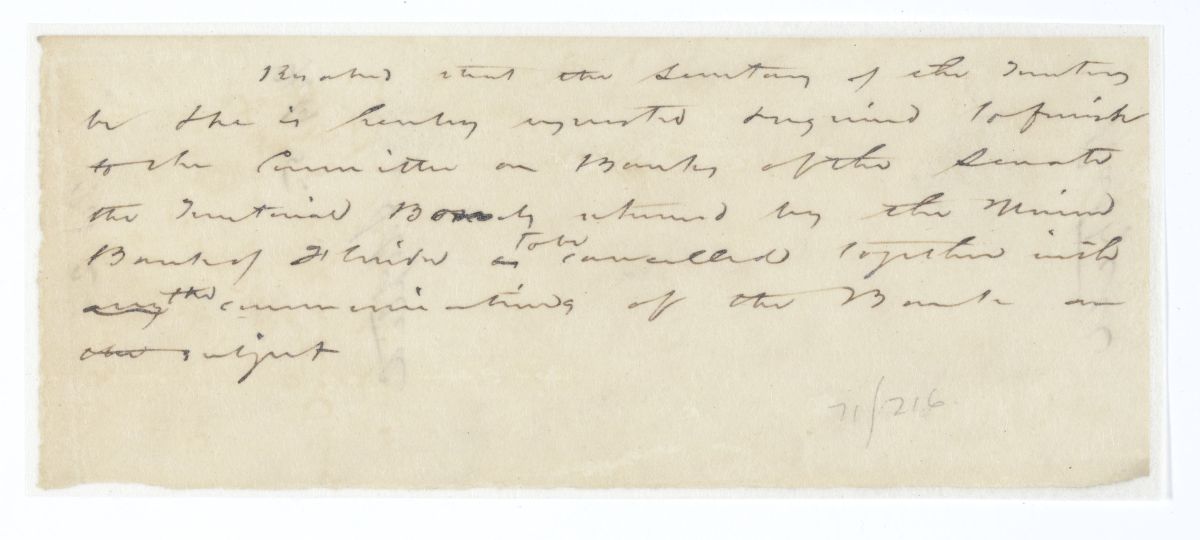 Resolved that the Secretary of the Territory
be & he is hereby requested & required to furnish
to the Committee on Banks of the Senate
the Territorial Bonds returned by the Union
Bank of Florida to be cancelled together with
any the communications of the Bank on
subject
71/216